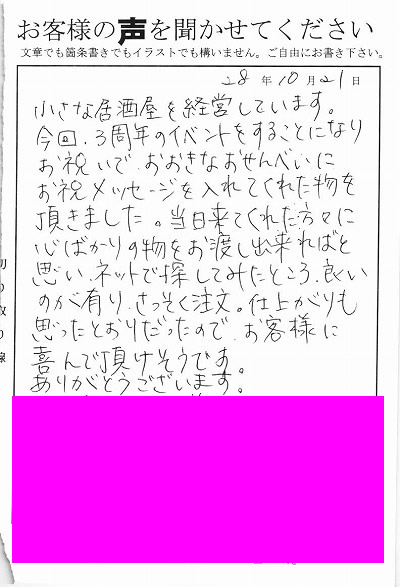 お客様の声を聞かせてください
文章でも箇条書きでもイラストでも構いません。ご自由にお書き下さい。
28年10月21日
小さな居酒屋を経営しています。
今回、3周年のイベントをすることになり
お祝いで、おおきなおせんべいに
お祝メッセージを入れてくれた物を
頂きました。当日来てくれた方々に
心ばかりの物をお渡し出来ればと
思い、ネットで探してみたところ、良い
のが有り、さっそく注文。仕上がりも
思ったとおりだったので、お客様に
喜んで頂けそうです。
ありがとうございます。
切り取り線